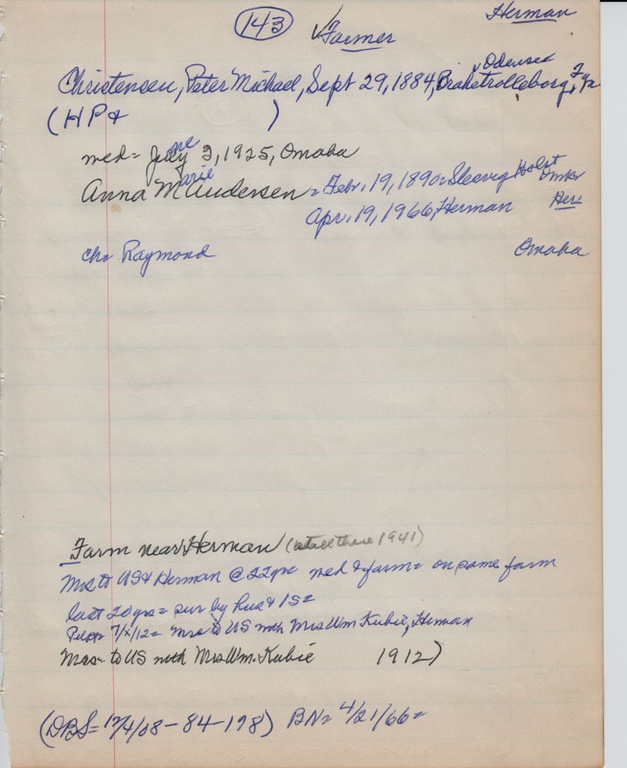 143 ✓Farmer Herman
Christensen, Peter Michael, Sept 29, 1884, Brahetrolleborg, Fyn
Odense
(HP& )
med= July 3, 1925, Omaha
ne
Anna M Andersen = Febr. 19, 1890= Slesvig Holst Dmkr
arie
Apr. 19, 1966, Herman Her.
ch= Raymond Omaha
Farm near Herman (still there 1941)
Mrs to US & Herman @ 22 yrs med & farm= on same farm
last 20 yrs= sur by hus & 1S=
7/ /12= Mrs to US with Mrs Wm. Kubie, Herman
Mrs= to US with Mrs Wm. Kubie 1912)
(DBS= 12/4/08-84-198) BN= 4/21/66=